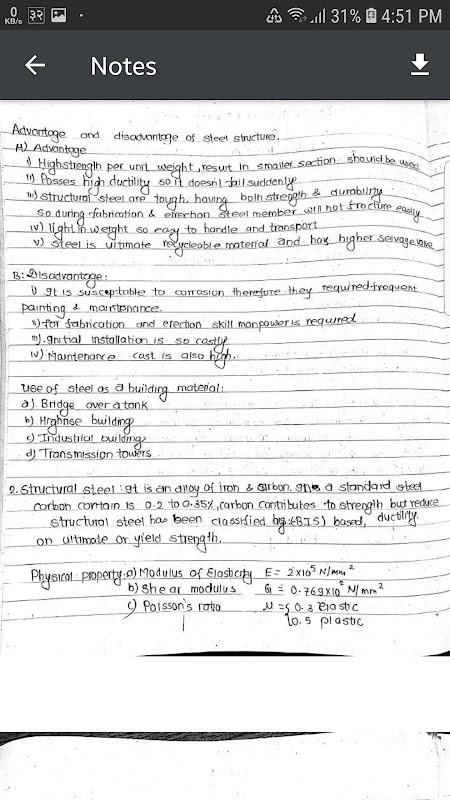 0
KB/s
३२
31%
4:51 PM
Notes
Advantage and disadvantage of steel structure.
A) Advantage
i) Highstrength per unit weight, result in smaller section should be used
ii) Posses high ductility so it doesn't fall suddenly
iii) structural steel are tough, having both strength & durability
so during fabrication & errection steel member will not fracture easily
iv) light in weight so easy to handle and transport
v) steel is ultimate recycleable material and has higher
B: Disadvantage:
i) It is susceptable to corrosion therefore they required frequent
painting &
ii) for fabrication and erection skill manpower is required
iii). Initial installation is so costly
iv) Maintenance cost is also high.
use of steel as a building material:
a) Bridge over a tank
b) Highrise building
c) Industrial building
d) Transmission towers
2. Structural steel : It is an alloy of iron & carbon. a standard steel
carbon contain is 0.2 to 0.35%, carbon contributes to strength but reduce
ductility.
structural steel has been classified by (BIS) based,
on ultimate or yield strength.
Physical property: a) Modulus of Elasticity E = 2x10⁵ N/mm²
b) Shear modulus G = 0.769x10² N/mm²
c) Poisson's ratio μ = { 0.3 elastic
0.5 plastic